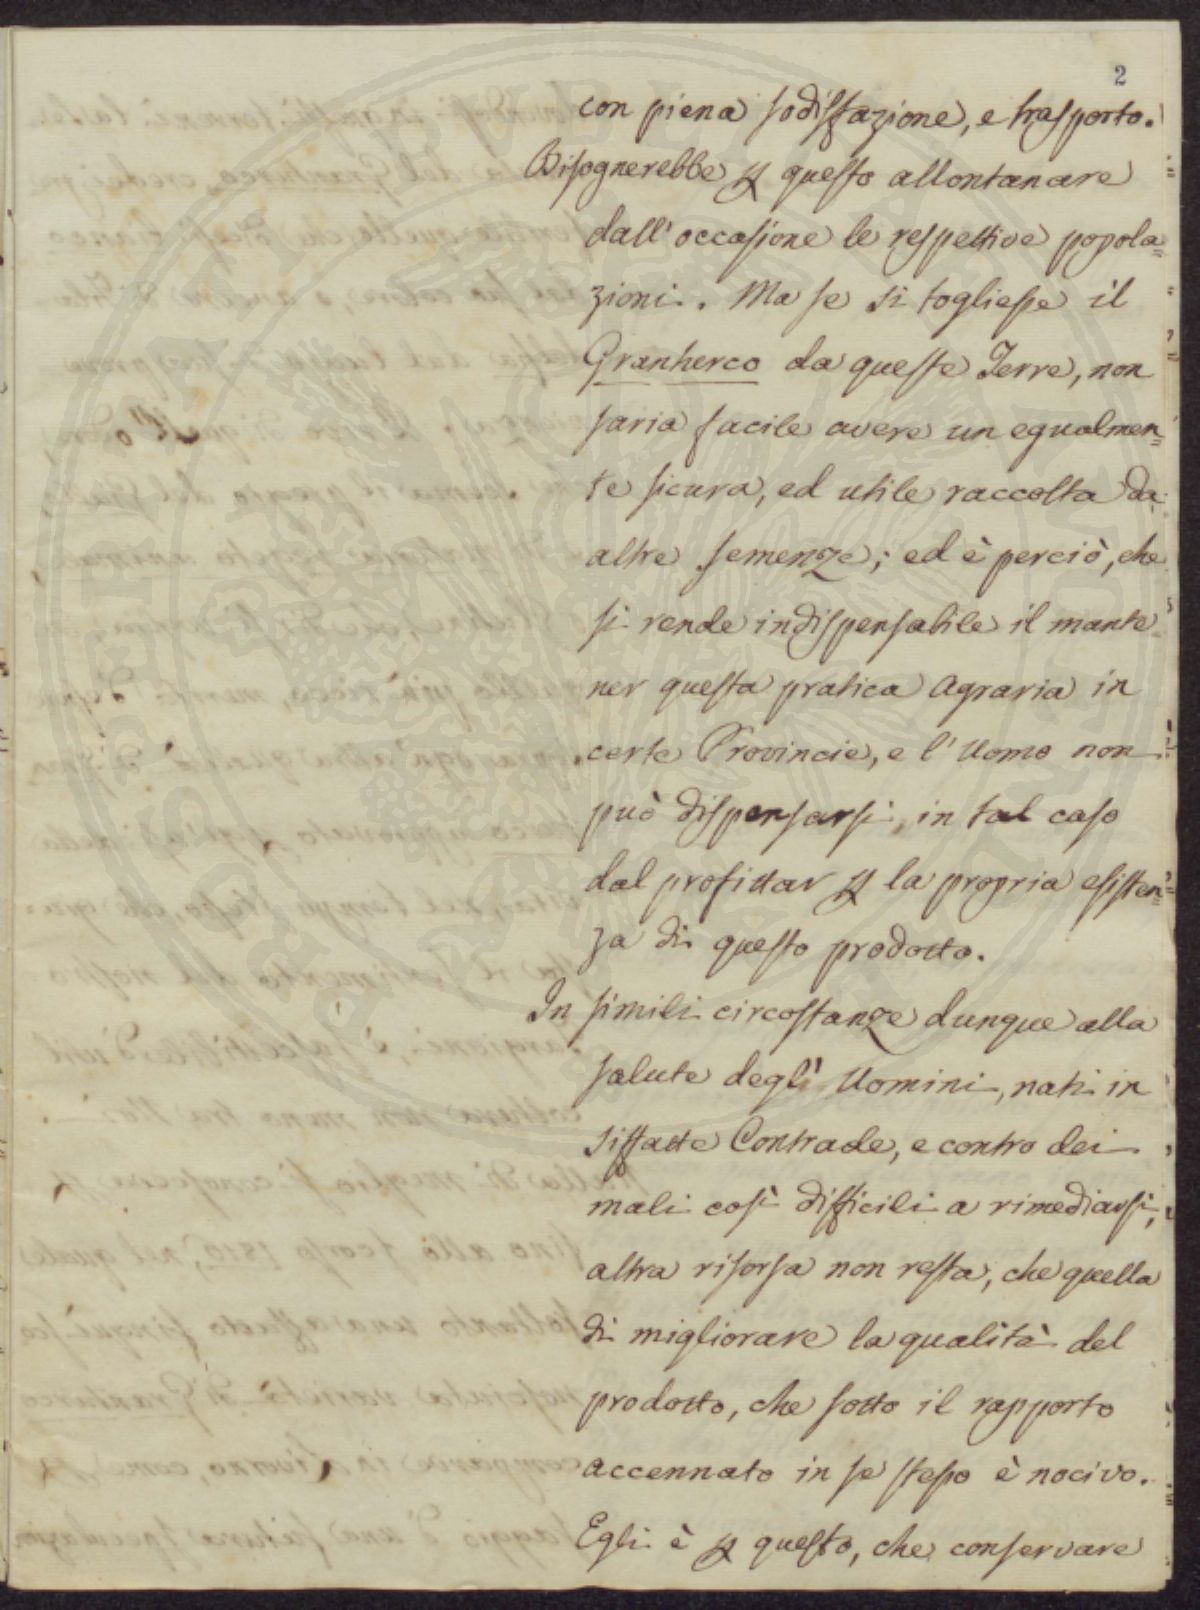 2
con piena sodisfazione, e trasporto.
Bisognerebbe p questo allontanare
dall'occasione le respettive popola=
zioni. Ma se si togliesse il
Granturco da queste Terre, non
saria facile avere un egualmen=
te sicura, ed utile raccolta da
altre semenze; ed è perciò, che
si rende indispensabile il mante
ner questa pratica Agraria in
certe Provincie, e l'Uomo non
può dispensarsi, in tal caso
dal profittar p la propria esisten=
za di questo prodotto.
In simili circostanze dunque alla
salute degli Uomini, nati in
siffatte Contrade, e contro dei
mali così difficili a rimediarsi,
altra risorsa non resta, che quella
di migliorare la qualità del
prodotto, che sotto il rapporto
accennato in se stesso è nocivo.
Egli è p questo, che conservare